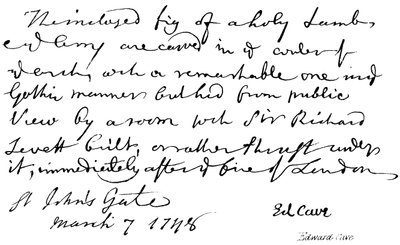 The inclosed fig of a holy Lamb,
are carved in
with a remarkable one in
Gothic manner but hid from public
View by a room wch Sir Richard
Levett built, or rather thrust under
it, immediately after fire of London
St John's Gate
March 7 1748
Ed Cave
Edward Cave